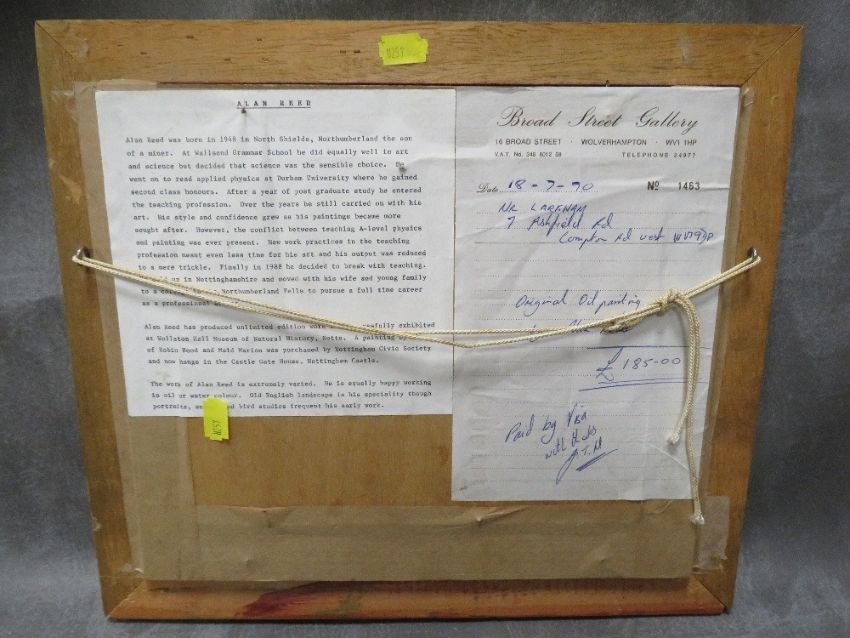 N259
ALAN REED
Alan Reed was born in 1948 in North Shields, Northumberland the son
of a miner. At Wallsend Grammar School he did equally well in art
and science but decided that science was the sensible choice. He
went on to read applied physics at Durham University where he gained
second class honours. After a year of post graduate study he entered
the teaching profession. Over the years he still carried on with his
art. His style and confidence grew as his paintings became more
sought after. However, the conflict between teaching A-level physics
and painting was ever present. New work practices in the teaching
profession meant even less time for his art and his output was reduced
to a mere trickle. Finally in 1988 he decided to break with teaching,
up in Nottinghamshire and moved with his wife and young family
to a Northumberland Fells to pursue a full time career
as a professional
Alan Reed has produced unlimited edition work fully exhibited
at Wollaton Hall Museum of Natural History, Notts. A painting
of Robin Hood and Maid Marion was purchased by Nottingham Civic Society
and now hangs in the Castle Gate House, Nottingham Castle.
The work of Alan Reed is extremely varied. He is equally happy working
in oil or water colour. Old English landscape is his speciality though
portraits, and bird studies frequent his early work.
N259
Broad Street Gallery
16 BROAD STREET · WOLVERHAMPTON · WV1 1HP
V.A.T. No. 346 8012 58 TELEPHONE 24977
Date 18-7-90 No 1463
Mr LARKHAM
7 Ashfield Rd
Compton Rd West WV3 9DP
Original Oil painting
by Alan Reed
£185-00
Paid by Visa
with thanks